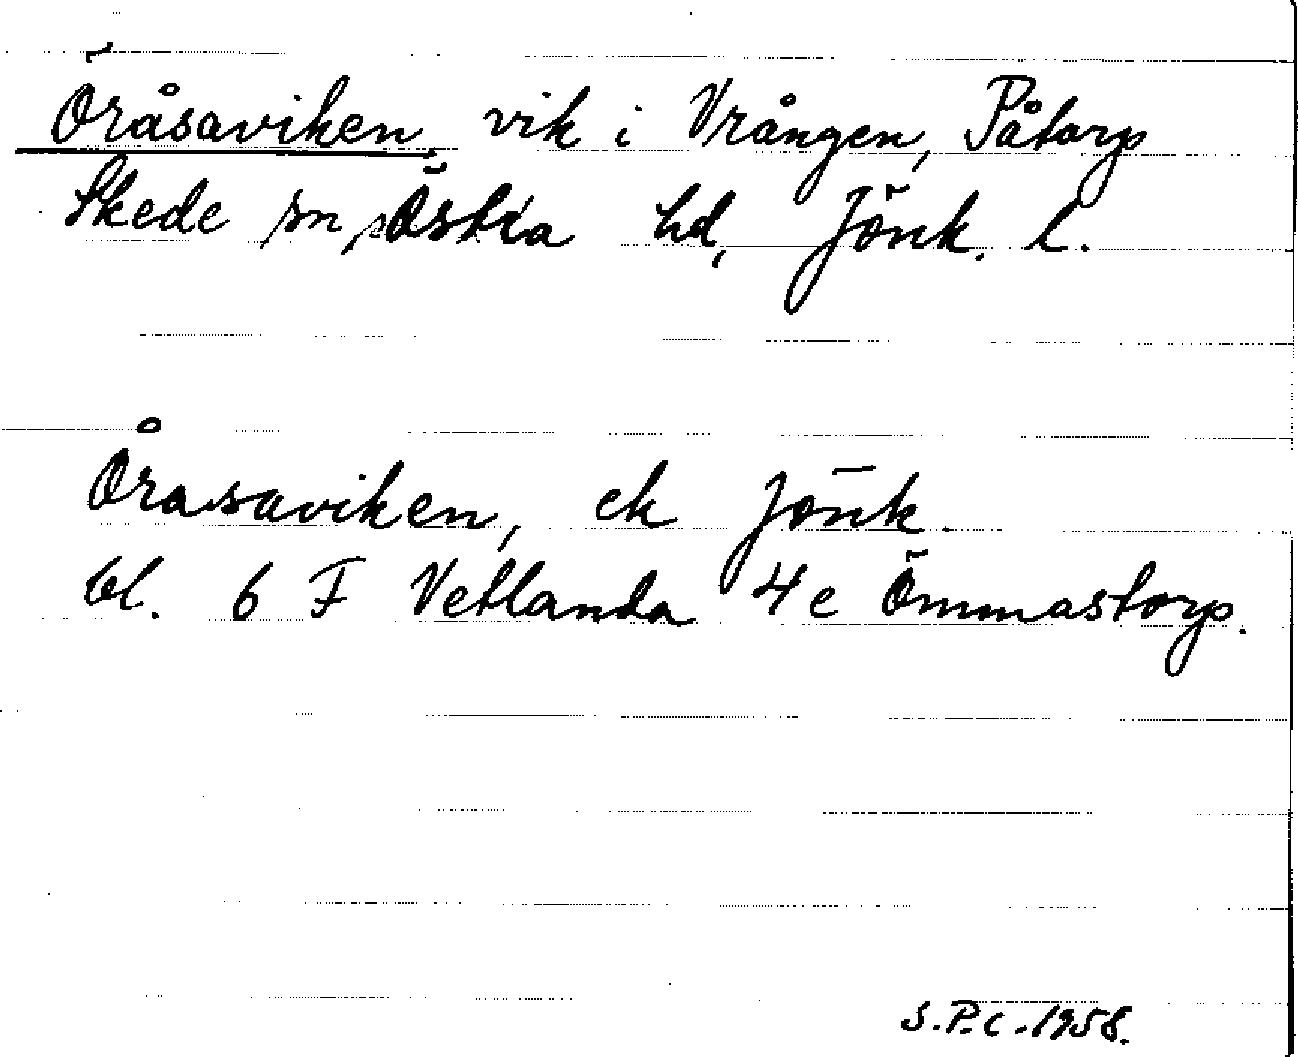 Öråsaviken, vik i Vrången, Påtorp
Skede sn, Östra hd, Jönk. l.
Åråsaviken, ek Jönk.
bl. 6 F Vetlanda 4e Ömmastorp.
S.P.C. 1958.